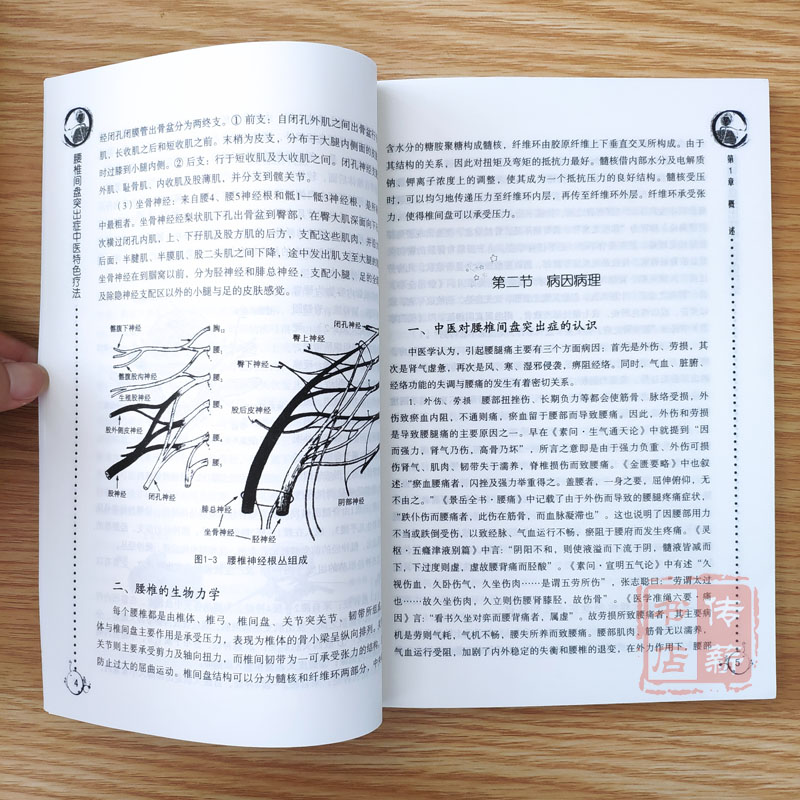 腰椎间盘突出症中医特色疗法
经闭孔闭膜管出骨盆分为两终支。① 前支：自闭孔外肌之间出骨盆
肌、长收肌之前和短收肌之前。末梢为皮支，分布于大腿内侧面的
时过膝到小腿内侧。② 后支：行于短收肌及大收肌之间。闭孔神经支
外肌、耻骨肌、内收肌及股薄肌，并分支到髋关节。
（3）坐骨神经：来自腰4、腰5神经根和骶1—骶3神经根，是所
中最粗者。坐骨神经经梨状肌下孔出骨盆到臀部，在臀大肌深面向下
次横过闭孔内肌，上、下孖肌及股方肌的后方，支配这些肌肉，并沿
后面，半腱肌、半膜肌、股二头肌之间下降，途中发出肌支至大腿
坐骨神经在到腘窝以前，分为胫神经和腓总神经，支配小腿、足的全
及除隐神经支配区以外的小腿与足的皮肤感觉。
髂腹下神经
髂腹股沟神经
生殖股神经
股外侧皮神经
股神经
闭孔神经
胸12
腰1
腰2
腰3
腰4
腰5
闭孔神经
臀上神经
臀下神经
股后皮神经
腓总神经
坐骨神经
胫神经
阴部神经
图1-3 腰椎神经根丛组成
二、腰椎的生物力学
每个腰椎都是由椎体、椎弓、椎间盘、关节突关节、韧带所组
体与椎间盘主要作用是承受压力，表现为椎体的骨小梁呈纵向排列。
关节则主要承受剪力及轴向扭力，而椎间韧带为一可承受张力的结构，
防止过大的屈曲运动。椎间盘结构可以分为髓核和纤维环两部分，中
4
第1章 概述
含水分的糖胺聚糖构成髓核，纤维环由胶原纤维上下垂直交叉所构成。由于
其结构的关系，因此对扭矩及弯矩的抵抗力最好。髓核借内部水分及电解质
钠、钾离子浓度上的调整，使其成为一个抵抗压力的良好结构。髓核受压
时，可以均匀地传递压力至纤维环内层，再传至纤维环外层。纤维环承受张
力，使得椎间盘可以承受压力。
第二节 病因病理
一、中医对腰椎间盘突出症的认识
中医学认为，引起腰腿痛主要有三个方面病因：首先是外伤、劳损，其
次是肾气虚惫，再次是风、寒、湿邪侵袭，痹阻经络。同时，气血、脏腑、
经络功能的失调与腰痛的发生有着密切关系。
1. 外伤、劳损 腰部扭挫伤、长期负力等都会使筋骨、脉络受损，外
伤致瘀血内阻，不通则痛，瘀血留于腰部而导致腰痛。因此，外伤和劳损
是导致腰腿痛的主要原因之一。早在《素问·生气通天论》中就提到“因
而强力，肾气乃伤，高骨乃坏”，所言之意即是由于强力负重、外伤可损
伤肾气、肌肉、韧带失于濡养，脊椎损伤而致腰痛。《金匮要略》中也叙
述：“瘀血腰痛者，闪挫及强力举重得之。盖腰者，一身之要，屈伸俯仰，无
不由之。”《景岳全书·腰痛》中记载了由于外伤而导致的腰腿疼痛症状，
“跌仆伤而腰痛者，此伤在筋骨，而血脉凝滞也”。这也说明了因腰部用力
不当或跌倒受伤，以致经脉、气血运行不畅，瘀阻于腰府而发生疼痛。《灵
枢·五癃津液别篇》中言：“阴阳不和，则使液溢而下流于阴，髓液皆减而
下，下过度则虚，虚故腰背痛而胫酸”。《素问·宣明五气论》中有述“久
视伤血，久卧伤气，久坐伤肉……是谓五劳所伤”，张志聪曰：“劳谓太过
也……故久坐伤肉，久立则伤腰肾膝胫，故伤骨”。《医学准绳六要·痛
因》言：“看书久坐对弈而腰背痛者，属虚”。故劳损所致腰痛者，其主要病
机是劳则气耗，气机不畅，腰失所养而致腰痛。腰部肌肉、筋骨无以濡养，
气血运行受阻，加剧了内外稳定的失衡和腰椎的退变，在外力作用下，腰部
5
传薪
书店